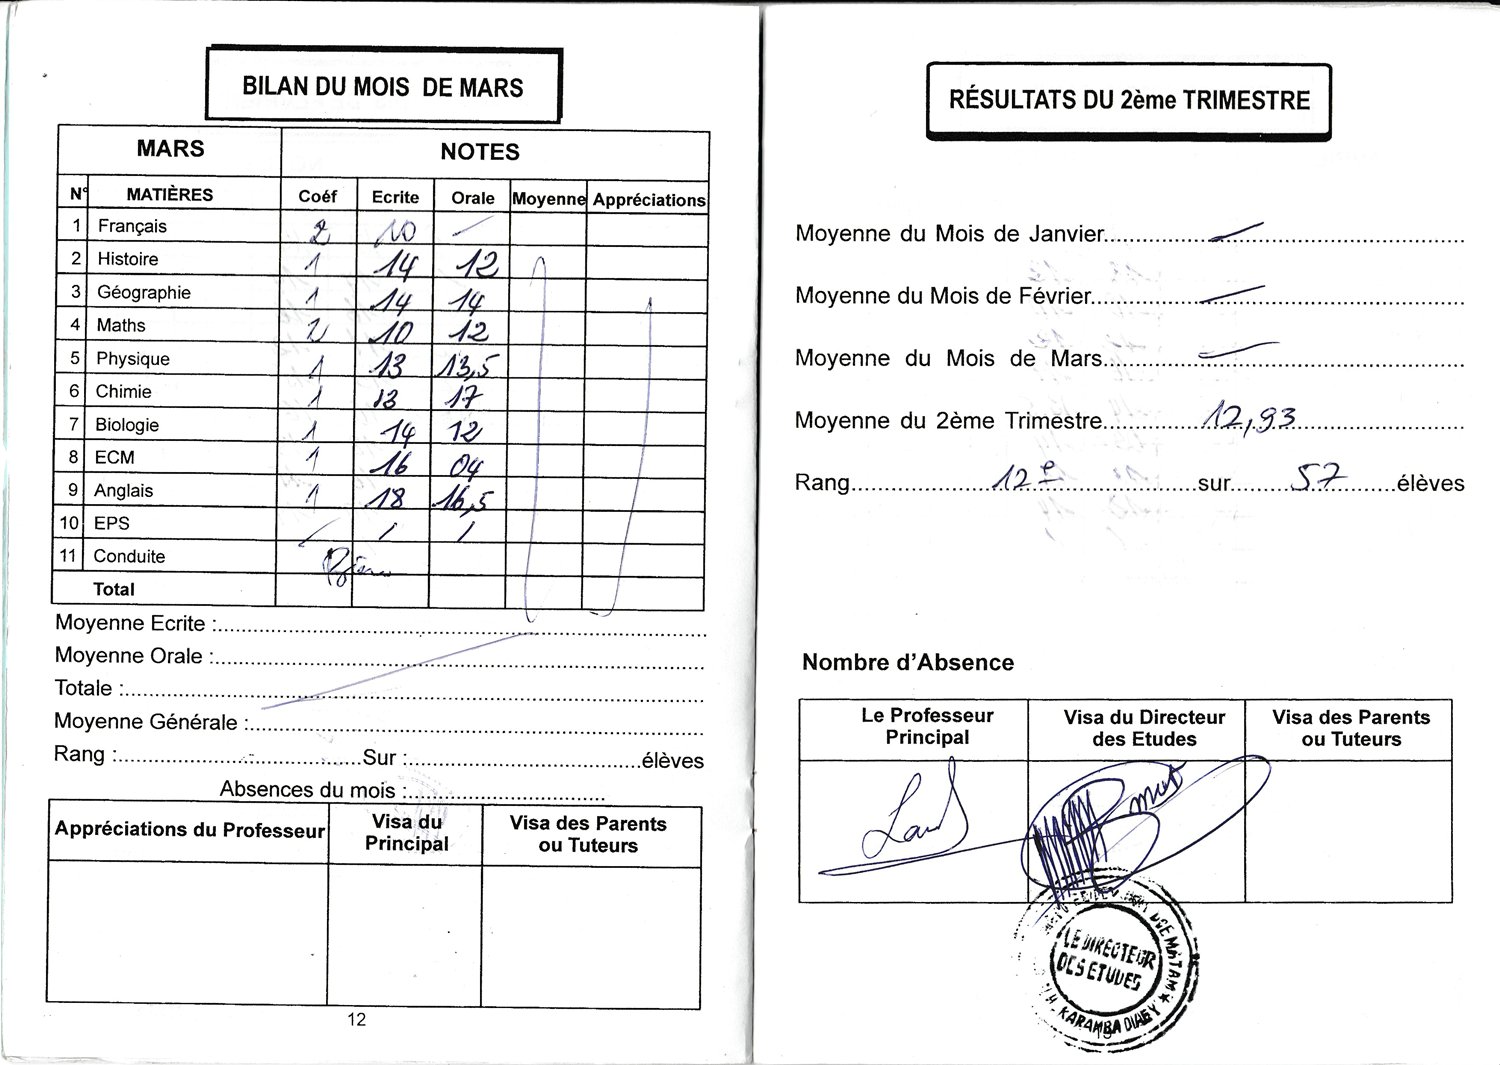 BILAN DU MOIS DE MARS
MARS NOTES
N° MATIÈRES Coéf Ecrite Orale Moyenne Appréciations
1 Français 2 10 —
2 Histoire 1 14 12
3 Géographie 1 14 14
4 Maths 2 10 12
5 Physique 1 13 13,5
6 Chimie 1 13 17
7 Biologie 1 14 12
8 ECM 1 16 04
9 Anglais 1 18 16,5
10 EPS / / /
11 Conduite
Total
Moyenne Ecrite :
Moyenne Orale :
Totale :
Moyenne Générale :
Rang : Sur : élèves
Absences du mois :
Appréciations du Professeur Visa du Principal Visa des Parents ou Tuteurs
12
RÉSULTATS DU 2ème TRIMESTRE
Moyenne du Mois de Janvier —
Moyenne du Mois de Février —
Moyenne du Mois de Mars —
Moyenne du 2ème Trimestre 12,93
Rang 12e sur 57 élèves
Nombre d'Absence
Le Professeur Principal Visa du Directeur des Etudes Visa des Parents ou Tuteurs
LE DIRECTEUR
DES ETUDES
DE MATAM ★
KARAMBA